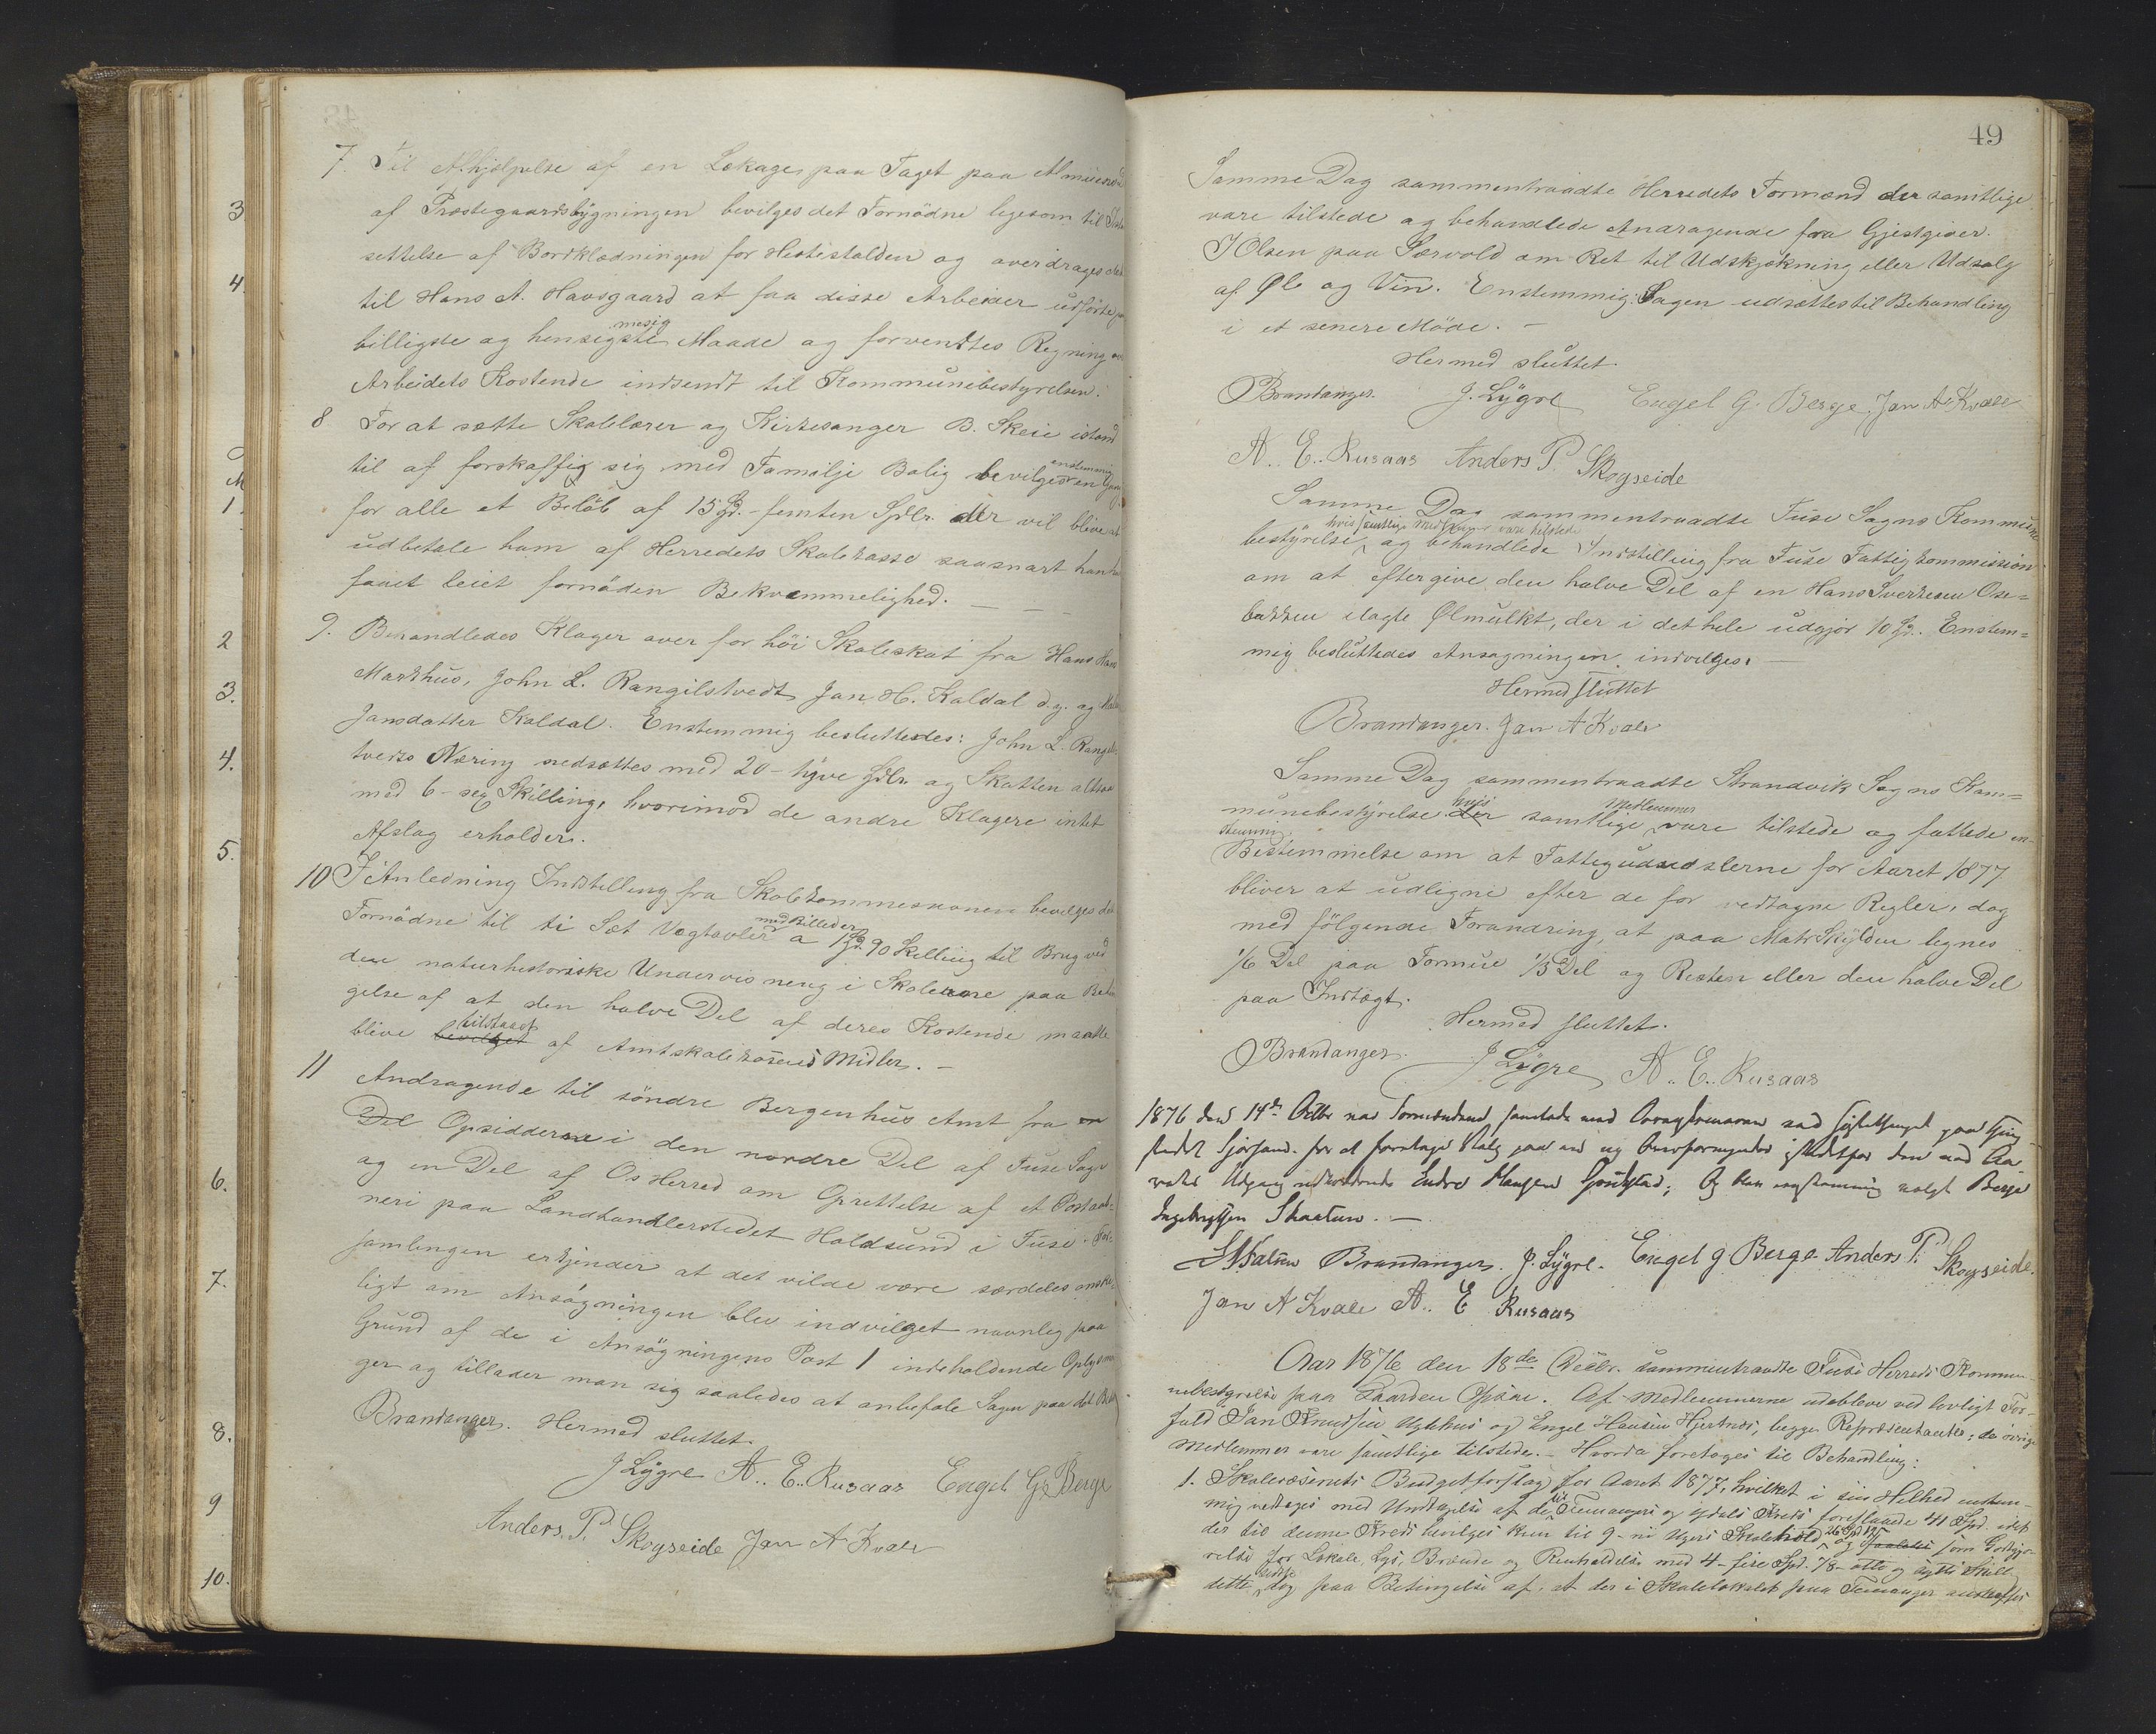 7. Til Afhjælpelse af en Lekage paa Taget paa
af Præstegaardsbygningen bevilges det Fornödne ligesom til
settelse af Bordklædningen for Hestestalden og overdrages
til Hans A. Havsgaard at faa disse Arbeider udförte
billigste og hensigstmesig Maade og forventtes Regning
Arbeidets Kostende indsendt til Kommunebestyrelsen.
8 For at sætte Skolelærer og Kirkesanger B. Skeie istand
til af forskaffe sig med Familje Bolig bevilges enstemmig en Gang
for alle et Belöb af 15 Spd. - femten Spdlr. der vil blive at
udbetale ham af Herredets Skolekasse saasnart han
faaet leiet fornöden Bekvæmmelighed. — — —
9. Behandledes Klager over for höi Skoleskat fra Hans
Markhus, John L. Rangilstvedt Jan H. Kaldal d.y. og
Jansdatter Kaldal. Enstemmig besluttedes: John L.
tvedts Næring nedsættes med 20 - tyve Spdlr og Skatten altsaa
med 6 - sex Skilling, hvorimod de andre Klagere intet
Afslag erholder.
10 I Anledning Indstilling fra Skolekommesionen bevilges det
Fornödne til ti Sæt Vægtavler med Billeder a 1 Spd. 90 Skelling til Brug ved
den naturhistoriske Undervisning i Skolerne paa
gelse af at den halve Del af deres Kostende maatte
blive bevilget tilstaaet af Amtskolekassens Midler. —
11 Andragende til söndre Bergenhus Amt fra en
Del Opsiddere i den nordre Del af Fuse Sogn
og en Del af Os Herred om Oprettelse af et Postaab=
neri paa Landhandlerstedet Holdsund i Fuse. For=
samlingen erkjender at det vilde være særdeles
ligt om Ansøgningen blev indvilget navnlig paa
Grund af de i Ansøgningens Post 1 indeholdende
ger og tillader man sig saaledes at anbefale Sagen paa det
Brandanger. Hermed sluttet.
J Lygre A.. E.. Rusaas Engel G. Berge
Anders. P. Skogseide Jan A Kvale
49
Samme Dag sammentraadte Herredets Formænd der samtlige
vare tilstede og behandlede Andragende fra Gjestgiver.
J Olsen paa Sævold om Ret til Udskjækning eller Udsalg
af Øl og Vin. Enstemmig: Sagen udsættes til Behandling
i et senere Möde. —
Hermed sluttet.
Brandanger. J. Lygre Engel G. Berge. Jan A Kvale
A.. E.. Rusaas Anders P. Skogseide
Samme Dag sammentraadte Fuse Sogns Kommune
bestyrelse hvis samtlige Medlemmer vare tilstede og behandlede Indstilling fra Fuse Fattigkommission
om at eftergive den halve Del af en Hans Sverkesen Ose=
bakken ilagte Ølmulkt, der i det hele udgjör 10 Spd. Enstem=
mig besluttedes Ansøgningen indvilges. —
Hermed sluttet
Brandanger. Jan A Kvale
Samme Dag sammentraadte Strandvik Sogns Kom=
munebestyrelse der hvis samtlige Medlemmer vare tilstede og fattede en-
stemmig
Bestemmelse om at Fattigudredslerne for Aaret 1877
bliver at udligne efter de for vedtagne Regler, dog
med fölgende Forandring, at paa Matr Skylden lignes
1/6 Del paa Formue 1/3 Del og Resten eller den halve Del
paa Indtægt.
Hermed sluttet.
Brandanger. J Lygre A.. E.. Rusaas
1876 den 14de Octbr var Formændene samlede med
stedet for at foretage Valg paa en ny Overformynder istedetfor den med Aa-
rets Udgang udtrædende Endre Monsen Gjuvstad; Og blev enstemmig valgt Berge
Ingebrigtsen Skaatun. —
Brandanger. J. Lygre. Engel G Berge Anders P. Skogseide.
Jan A Kvale A.. E Rusaas
Aar 1876 den 18de Decbr. sammentraadte Fuse Herreds Kommu-
nebestyrelse paa Gaarden Opsæe. Af Medlemmerne udebleve ved lovligt For-
fald Jan Knudsen og Engel Hansen Hjertnæs, begge Repræsentanter; de övrige
Medlemmer vare samtlige tilstede. — Hvorda foretoges til Behandling:
1. Skolevæsenets Budgetforslag for Aaret 1877, hvilket i sin Helhed enstem-
mig vedtages med Undtagelse af de til og Kreds foreslaaede 41 Spd. idet
der til denne Kreds bevilges kun til 9 - ni Ugers Skolehold og som Godtgjö-
relse for Lokale, Lys, Brænde og Renholdelse med 4 - fire Spd. 78 - otte og sytti Skill.
dette dog paa Betingelse af, at der i Skolelokalet paa anskaffes
3
4.
1.
2
3.
4.
5.
6.
7.
8.
9
10.